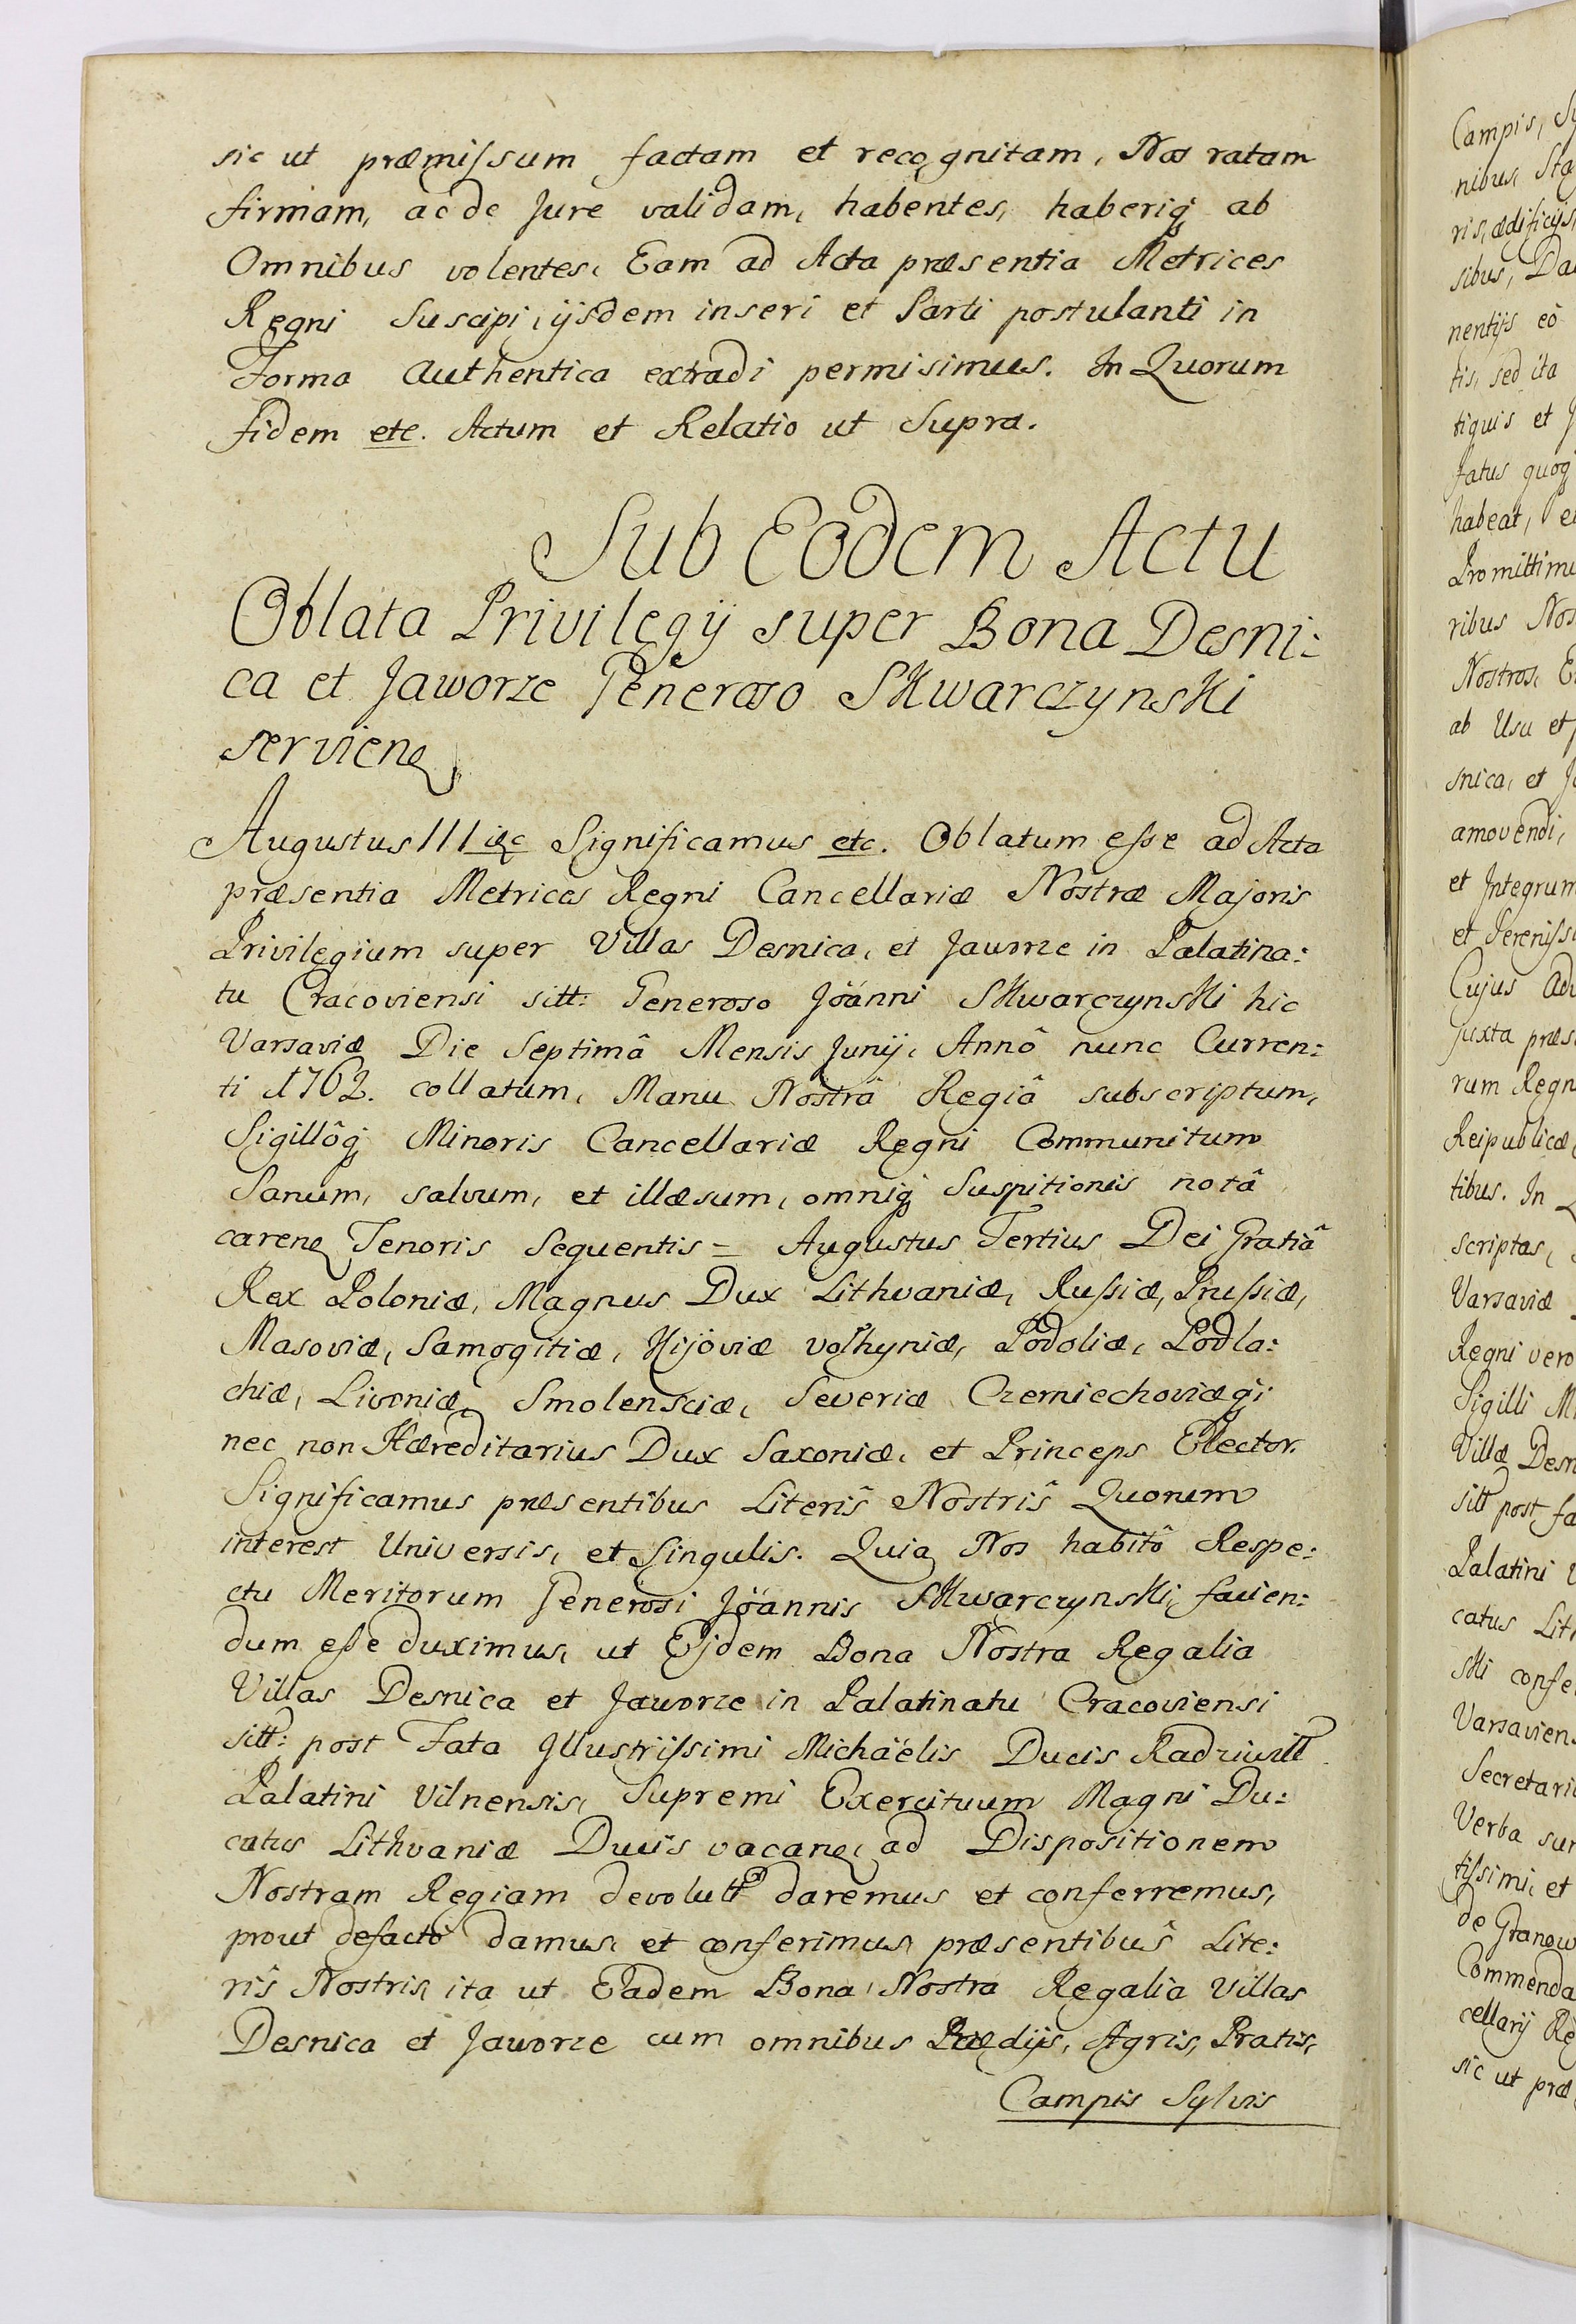 sic ut præmissum factam et recognitam, Nos ratam
firmam, ac de Jure validam, habentes, haberiq₃ ab
Omnibus volentes, Eam ad Acta præsentia Metrices
Regni Suscipi, ijsdem inseri et Parti postulanti in
Forma Authentica extradi permisimus. In Quorum
fidem etc. Actum et Relatio ut Supra.
Sub Eodem Actu
Oblata Privilegij super Bona Desni:
ca et Jaworze Generoso Skwarczynski
servien̄
Augustus III etc Significamus etc. Oblatum esse ad Acta
præsentia Metrices Regni Cancellariæ Nostræ Majoris
Privilegium super Villas Desnica, et Jaworze in Palatina:
tu Cracoviensi sitt: Generoso Joanni Skwarczynski hic
Varsaviæ Die Septimâ Mensis Junij, Annô nunc Curren:
ti 1762. collatum, Manu Nostrâ Regiâ subscriptum,
Sigillôq₃ Minoris Cancellariæ Regni Communitum
Sanum, salvum, et illæsum, omniq₃ Suspitionis notâ
caren̄ Tenoris Sequentis = Augustus Tertius Dei Gratiâ
Rex Poloniæ, Magnus Dux Lithvaniæ, Russiæ, Prussiæ,
Masoviæ, Samogitiæ, Kijoviæ volhyniæ, Podoliæ, Podla:
chiæ, Livoniæ, Smolensciæ, Severiæ Czerniechoviæq₃;
nec non Hæreditarius Dux Saxoniæ, et Princeps Elector.
Significamus præsentibus Literîs Nostrîs Quorum
interest Universis, et Singulis. Quia Nos habitô Respe:
ctu Meritorum Generosi Joannis Skwarczynski, facien:
dum esse duximus, ut Ejdem Bona Nostra Regalia
Villas Desnica et Jaworze in Palatinatu Cracoviensi
sitt: post Fata Illustrissimi Michaëlis Ducis Radziwiłł
Palatini Vilnensis, Supremi Exercituum Magni Du:
catus Lithvaniæ Ducis vacan̄, ad Dispositionem
Nostram Regiam devolutt daremus et conferremus,
prout defactô damus, et conferimus præsentibus Lite:
rîs Nostris, ita ut Eadem Bona Nostra Regalia Villas
Desnica et Jaworze cum omnibus Prædijs, Agris, Pratis,
Campis Sylvis
Campis, Sy
nibus, Sta
ris, ædificijs,
sibus, Da
nentijs eô
tis, sed ita
tiquis et J
fatus quoq₃
habeat, et
Promittimu
ribus Nos
Nostros, E
ab Usu et p
snica, et Ja
amovendi,
et Integrum
et Sereniss
Cujus Adv
juxta præs
rum Regn
Reipublicæ,
tibus. In Q
scriptas,
Varsaviæ
Regni vero
Sigilli M
Villæ Desn
sitt post fa
Palatini V
catus Lith
ski confe
Varsavien
Secretari
Verba sun
tissimi, et
de Granow
Commenda
cellarij Re
sic ut præ